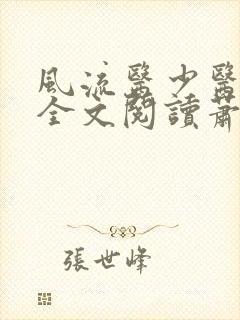 風流醫少醫
全文閱讀蕭
張世峰